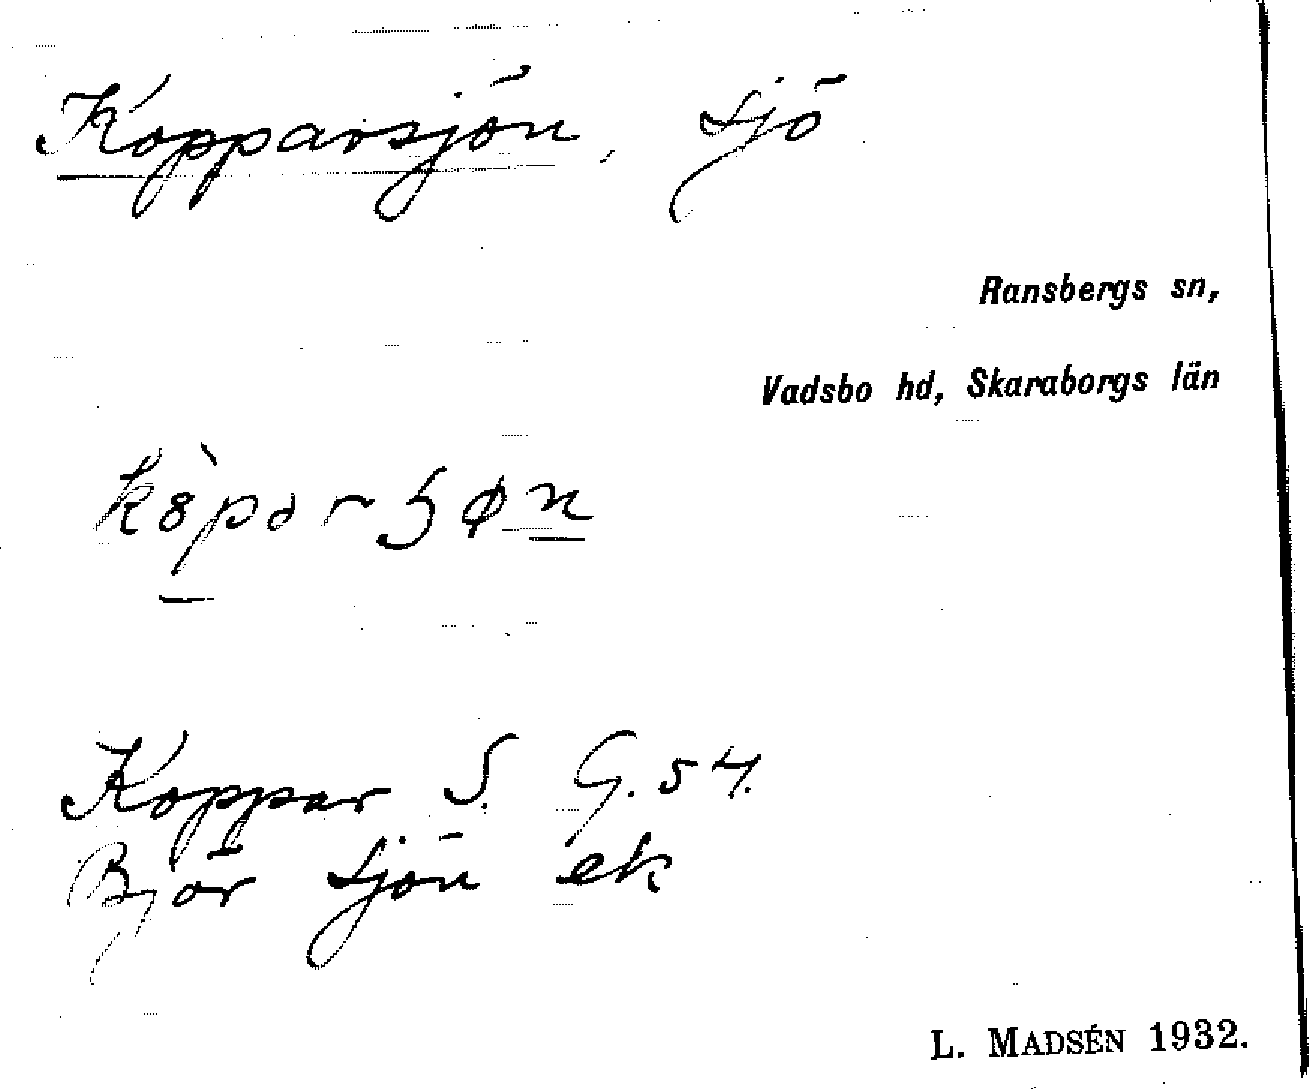 Kopparsjön, sjö
Ransbergs sn,
Vadsbo hd, Skaraborgs län
Koppar S. G. 54.
Björ sjön ek
L. MADSÉN 1932.